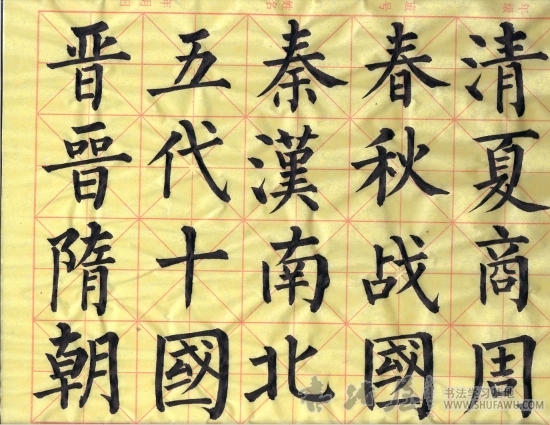 清夏商周
春秋战國
秦漢南北
五代十國
晋晉隋朝
书法学习基地
WWW.SHUFAWU.COM